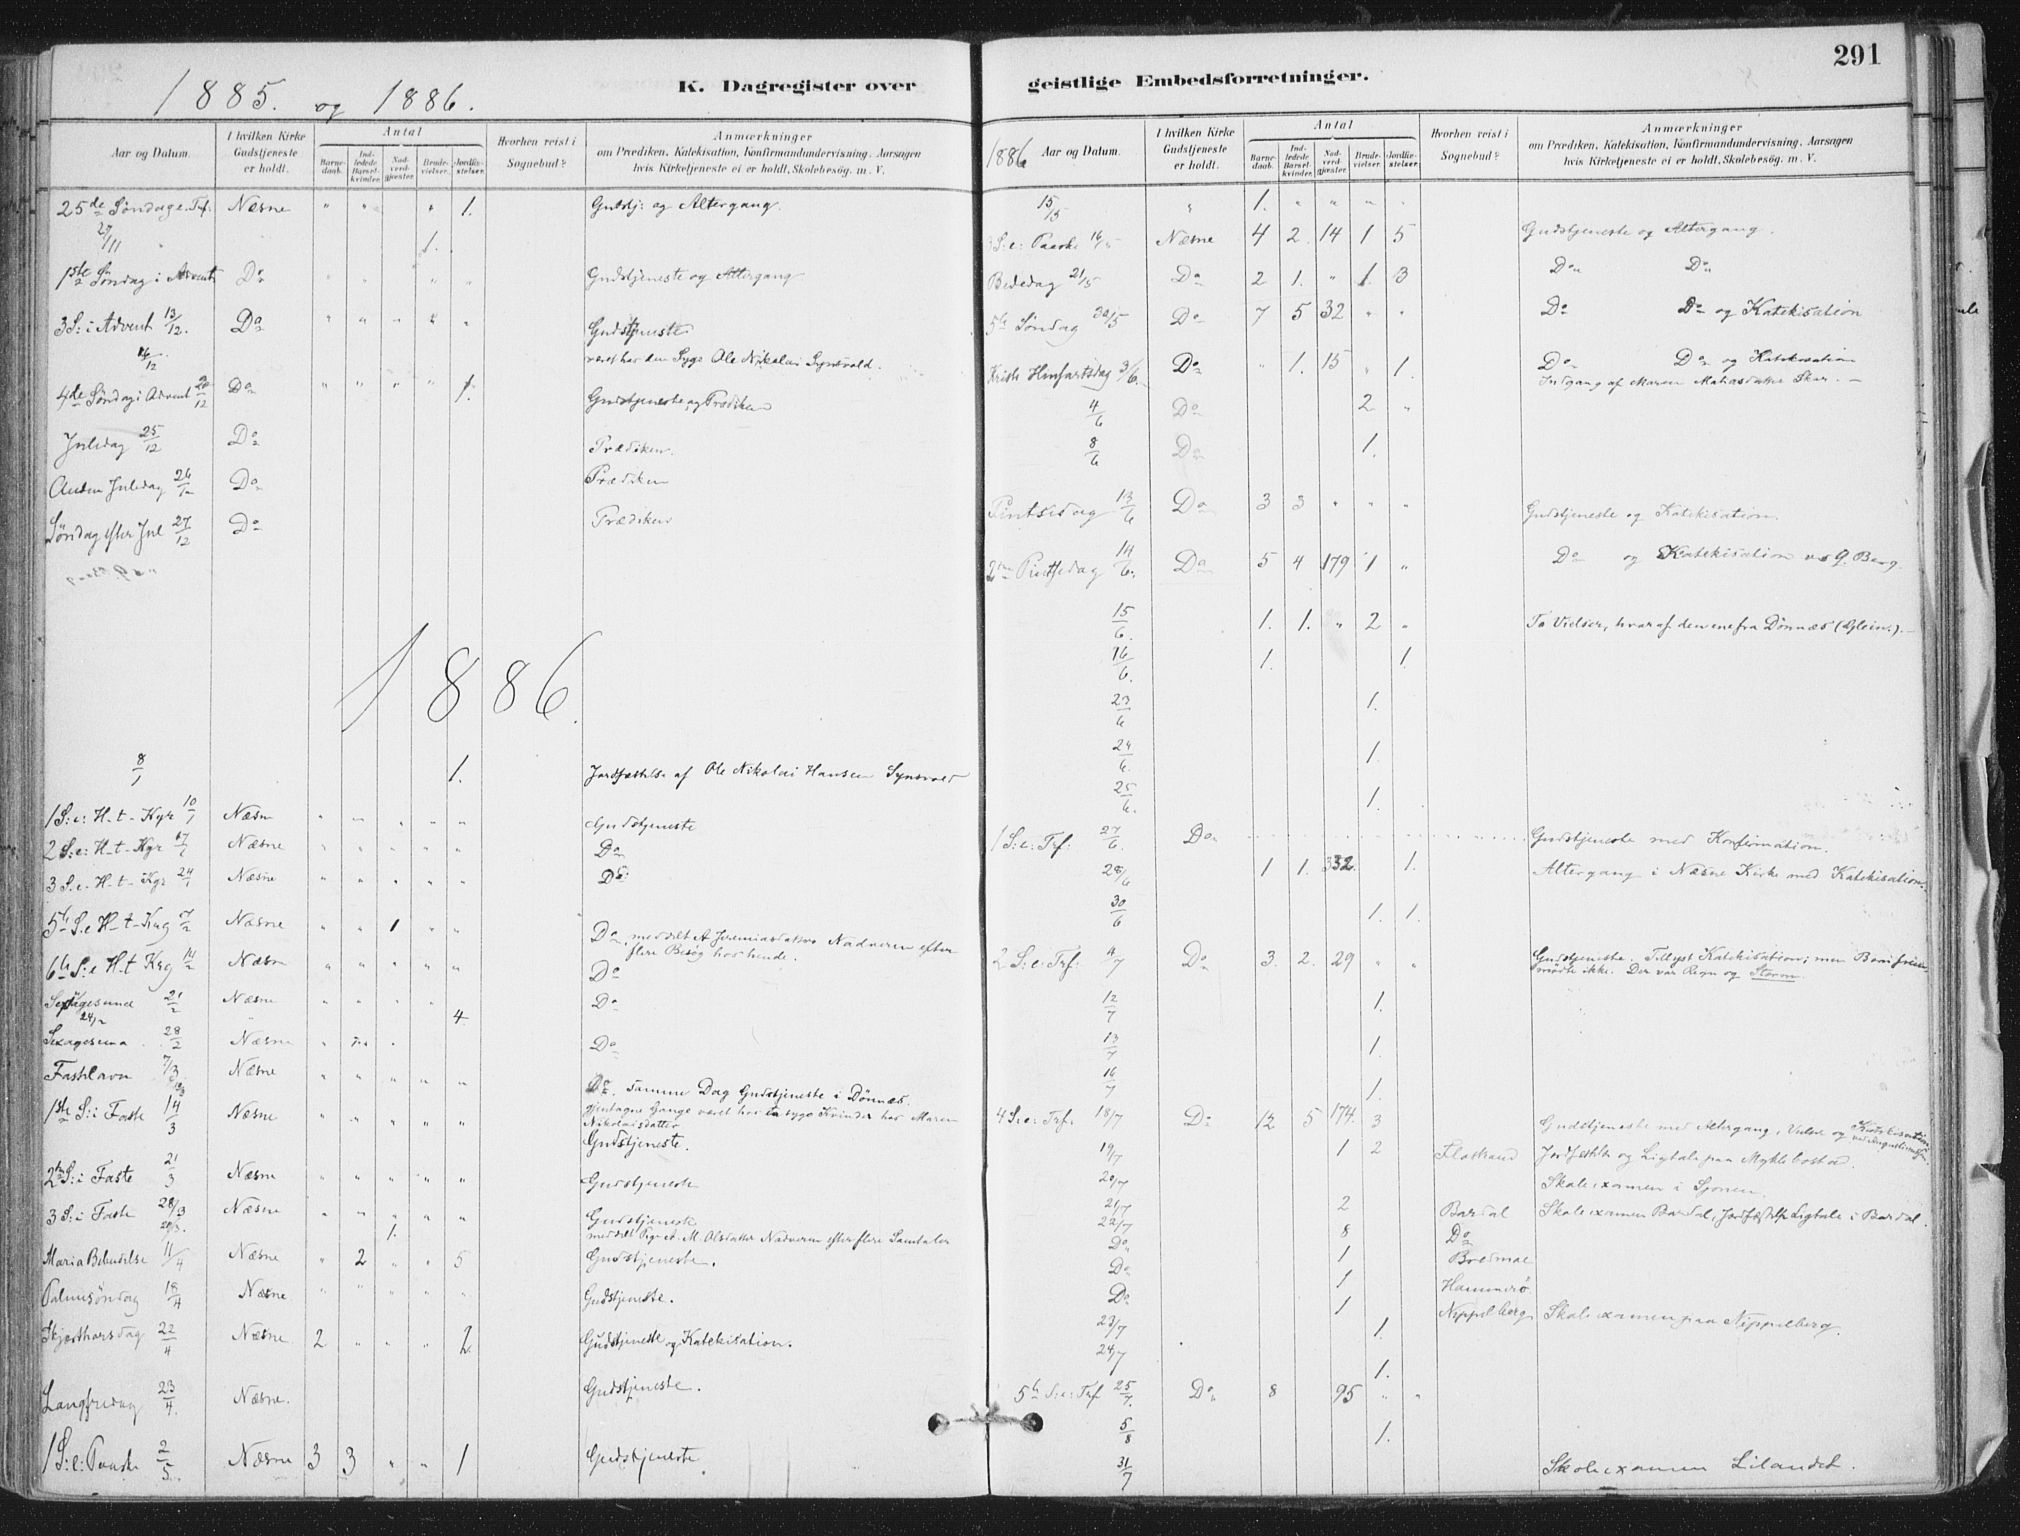 1885. og 1886.
K. Dagregister over
Aar og Datum.
I hvilken Kirke Gudstjeneste er holdt.
Antal
Barnedaab.
Indledede Barselkvinder.
Nadverdgjæster.
Brudevielser.
Jordfæstelser.
Hvorhen reist i Sognebud?
Anmærkninger
om Prædiken, Katekisation, Konfirmandundervisning, Aarsagen hvis Kirketjeneste ei er holdt, Skolebesög. m. V.
25de Søndag e. Trf: Næsne " " " 1. Gudstj: og Altergang.
27/11 " 1.
1ste Søndag i Advent Do " " " " Gudstjeneste og Altergang
3 S: i Advent 13/12. Do " " " " " Gudstjeneste
16/12 været hos den Syge Ole Nikolai Synsvold.
4de Søndag i Advent 20/12 Do " " " " 1. Gudstjeneste og Prædiken
Juledag 25/12 Do Prædiken.
Anden Juledag 26/12 Do Prædiken
Søndag efter Jul 27/12 Do Prædiken
1886.
8/1 1. Jordfæstelse af Ole Nikolai Hansen Synsvold
1 S: e: H-t-Kgr 10/1 Næsne " " " " " Gudstjeneste
2 S: e: H-t-Kgr 17/1 Næsne " " " " " Do
3 S. e. H-t-Kgr 24/1 Næsne " " " " " Do
5te S. e H-t-Krg 7/2 Næsne " " 1 " " Do, meddelt A Jeremiasdatter Nadveren efter
flere Besøg hos hende.
6te S: e H-t Krg 14/2 Næsne " " " " " Do
21/2 Næsne " " " " Do
24/2 " 4.
Sexagesima 28/2 Næsne Do
Fastelavn 7/3 Næsne " " " " " Do. samme Dag Gudstjeneste i Dønnæs.
gjentagne Gange været hos syge Kvinder hos Maren
Nikolaisdatter
1ste S: i Faste 14/3 Næsne " " " " " Gudstjeneste.
2den S: i Faste 21/3 Næsne " " " " " Gudstjeneste
3 S: i Faste 28/3 Næsne " " " " " Gudstjeneste
1. meddelt M. Olsdatter Nadveren efter flere Samtaler
Maria Bebudelse 11/4 Næsne " 2 " " 5 Gudstjeneste.
Palmesöndag 18/4 Næsne " " " " " Gudstjeneste.
Skjærthorsdag 22/4 Næsne. 2 " " " 2. Gudstjeneste og Katekisation.
Langfredag 23/4. Næsne. Gudstjeneste.
1 S: e: Paaske 2/5. Næsne 3 3 " " 1 Gudstjeneste
291
geistlige Embedsforretninger.
1886
Aar og Datum.
I hvilken Kirke Gudstjeneste er holdt.
Antal
Barnedaab.
Indledede Barselkvinder.
Nadverdgjæster.
Brudevielser.
Jordfæstelser.
Hvorhen reist i Sognebud?
Anmærkninger
om Prædiken, Katekisation, Konfirmandundervisning, Aarsagen hvis Kirketjeneste ei er holdt, Skolebesög. m. V.
15/5 " 1. " " " "
3 S: e: Paaske 16/5 Næsne 4 2. 14 1 5 Gudstjeneste og Altergang.
Bededag 21/5 Do 2 1. " 1. 3 Do Do
5te Søndag 30/5 Do 7 5 32 " " Do Do og Katekisation
Kristi Himfartsdag 3/6. Do " 1. 15 " 1. Do Do og Katekisation
Indgang af Maren Matiasdatter Skar. —
4/6 Do 2 "
8/6 Do 1.
Pintsedag 13/6 Do 3 3 " " " Gudstjeneste og Katekisation.
2den Pintsedag 14/6. Do 5 4 179 1 " Do og Katekisation ved G. Berg.
15/6. 1. 1. " 2 " To Vielser, hvoraf den ene fra Dønnæs (Glein.). —
16/6. 1. 1.
23/6 1.
24/6. 1.
25/6. 1.
1 S: e: Trf: 27/6. Do Gudstjeneste med Konfirmation.
28/6 1 1. 332. 1. Altergang i Næsne Kirke med Katekisation.
30/6 1. 1.
2 S: e: Trf: 4/7 Do 3. 2. 29 " " Gudstjeneste. Tillyst Katekisation; men
mødte ikke. Der var Regn og Storm.
12/7 1.
13/7 1.
16/7 1.
4 S: e: Trf. 18/7 Do 12 5 174. 3 Gudstjeneste med Altergang, Vielse og Katekisation
19/7 1 2 Flostrand Jordfæstelse og Ligtale paa Myklebostad.
20/7 Skoleexamen i Sjonen.
21/7 2 Bardal Skoleexamen Bardal, Jordfæstelse Ligtale i Bardal.
22/7 8 Do
Do 1
Do 1 Hammerö
Do 1 Nippelberg Skoleexamen paa Nippelberg.
23/7 1.
24/7 1.
5te S: e: Trf 25/7. Do 8 95 " "
5/8 1.
31/7 Skoleexamen Lilandet.